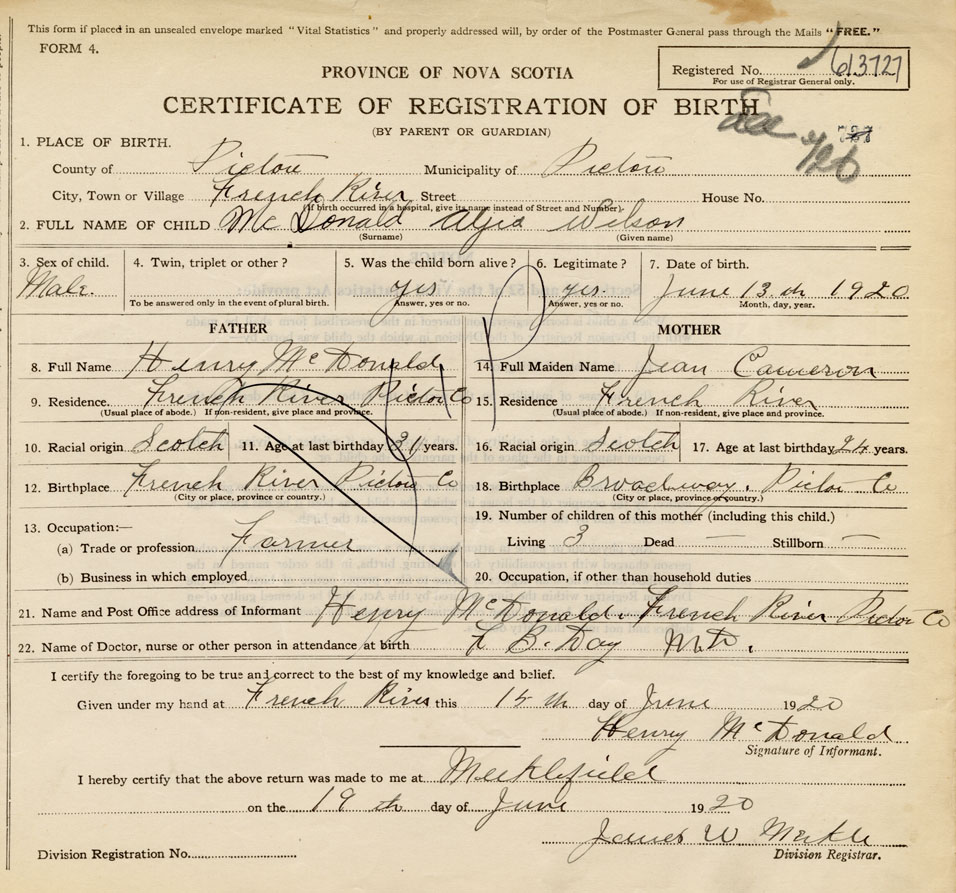 This form if placed in an unsealed envelope marked "Vital Statistics" and properly addressed will, by order of the Postmaster General pass through the Mails "FREE."
FORM 4.
PROVINCE OF NOVA SCOTIA
Registered No. 613727
For use of Registrar General only.
CERTIFICATE OF REGISTRATION OF BIRTH
(BY PARENT OR GUARDIAN)
See 726
1. PLACE OF BIRTH.
County of Pictou Municipality of Pictou
City, Town or Village French River Street House No.
(If birth occurred in a hospital, give its name instead of Street and Number).
2. FULL NAME OF CHILD McDonald Wilson
(Surname) (Given name)
3. Sex of child. 4. Twin, triplet or other? 5. Was the child born alive? 6. Legitimate? 7. Date of birth.
Male. yes yes. June 13 th 1920
To be answered only in the event of plural birth. Answer, yes or no. Answer, yes or no. Month, day, year.
FATHER MOTHER
8. Full Name Henry McDonald 14. Full Maiden Name Jean Cameron
9. Residence. French River Pictou Co 15. Residence French River
(Usual place of abode.) If non-resident, give place and province. (Usual place of abode.) If non-resident, give place and province.
10. Racial origin Scotch 11. Age at last birthday 31 years. 16. Racial origin Scotch 17. Age at last birthday 24 years.
12. Birthplace French River Pictou Co 18. Birthplace Broadway. Pictou Co
(City or place, province or country.) (City or place, province or country.)
13. Occupation:— 19. Number of children of this mother (including this child.)
(a) Trade or profession Farmer Living 3 Dead — Stillborn —
(b) Business in which employed 20. Occupation, if other than household duties
21. Name and Post Office address of Informant Henry McDonald. French River Pictou Co
22. Name of Doctor, nurse or other person in attendance at birth B. Day M.D.
I certify the foregoing to be true and correct to the best of my knowledge and belief.
Given under my hand at French River this 15 th day of June 1920
Henry McDonald
Signature of Informant.
I hereby certify that the above return was made to me at Meiklefield
on the 19 th day of June 1920
James W Meikle
Division Registration No. Division Registrar.